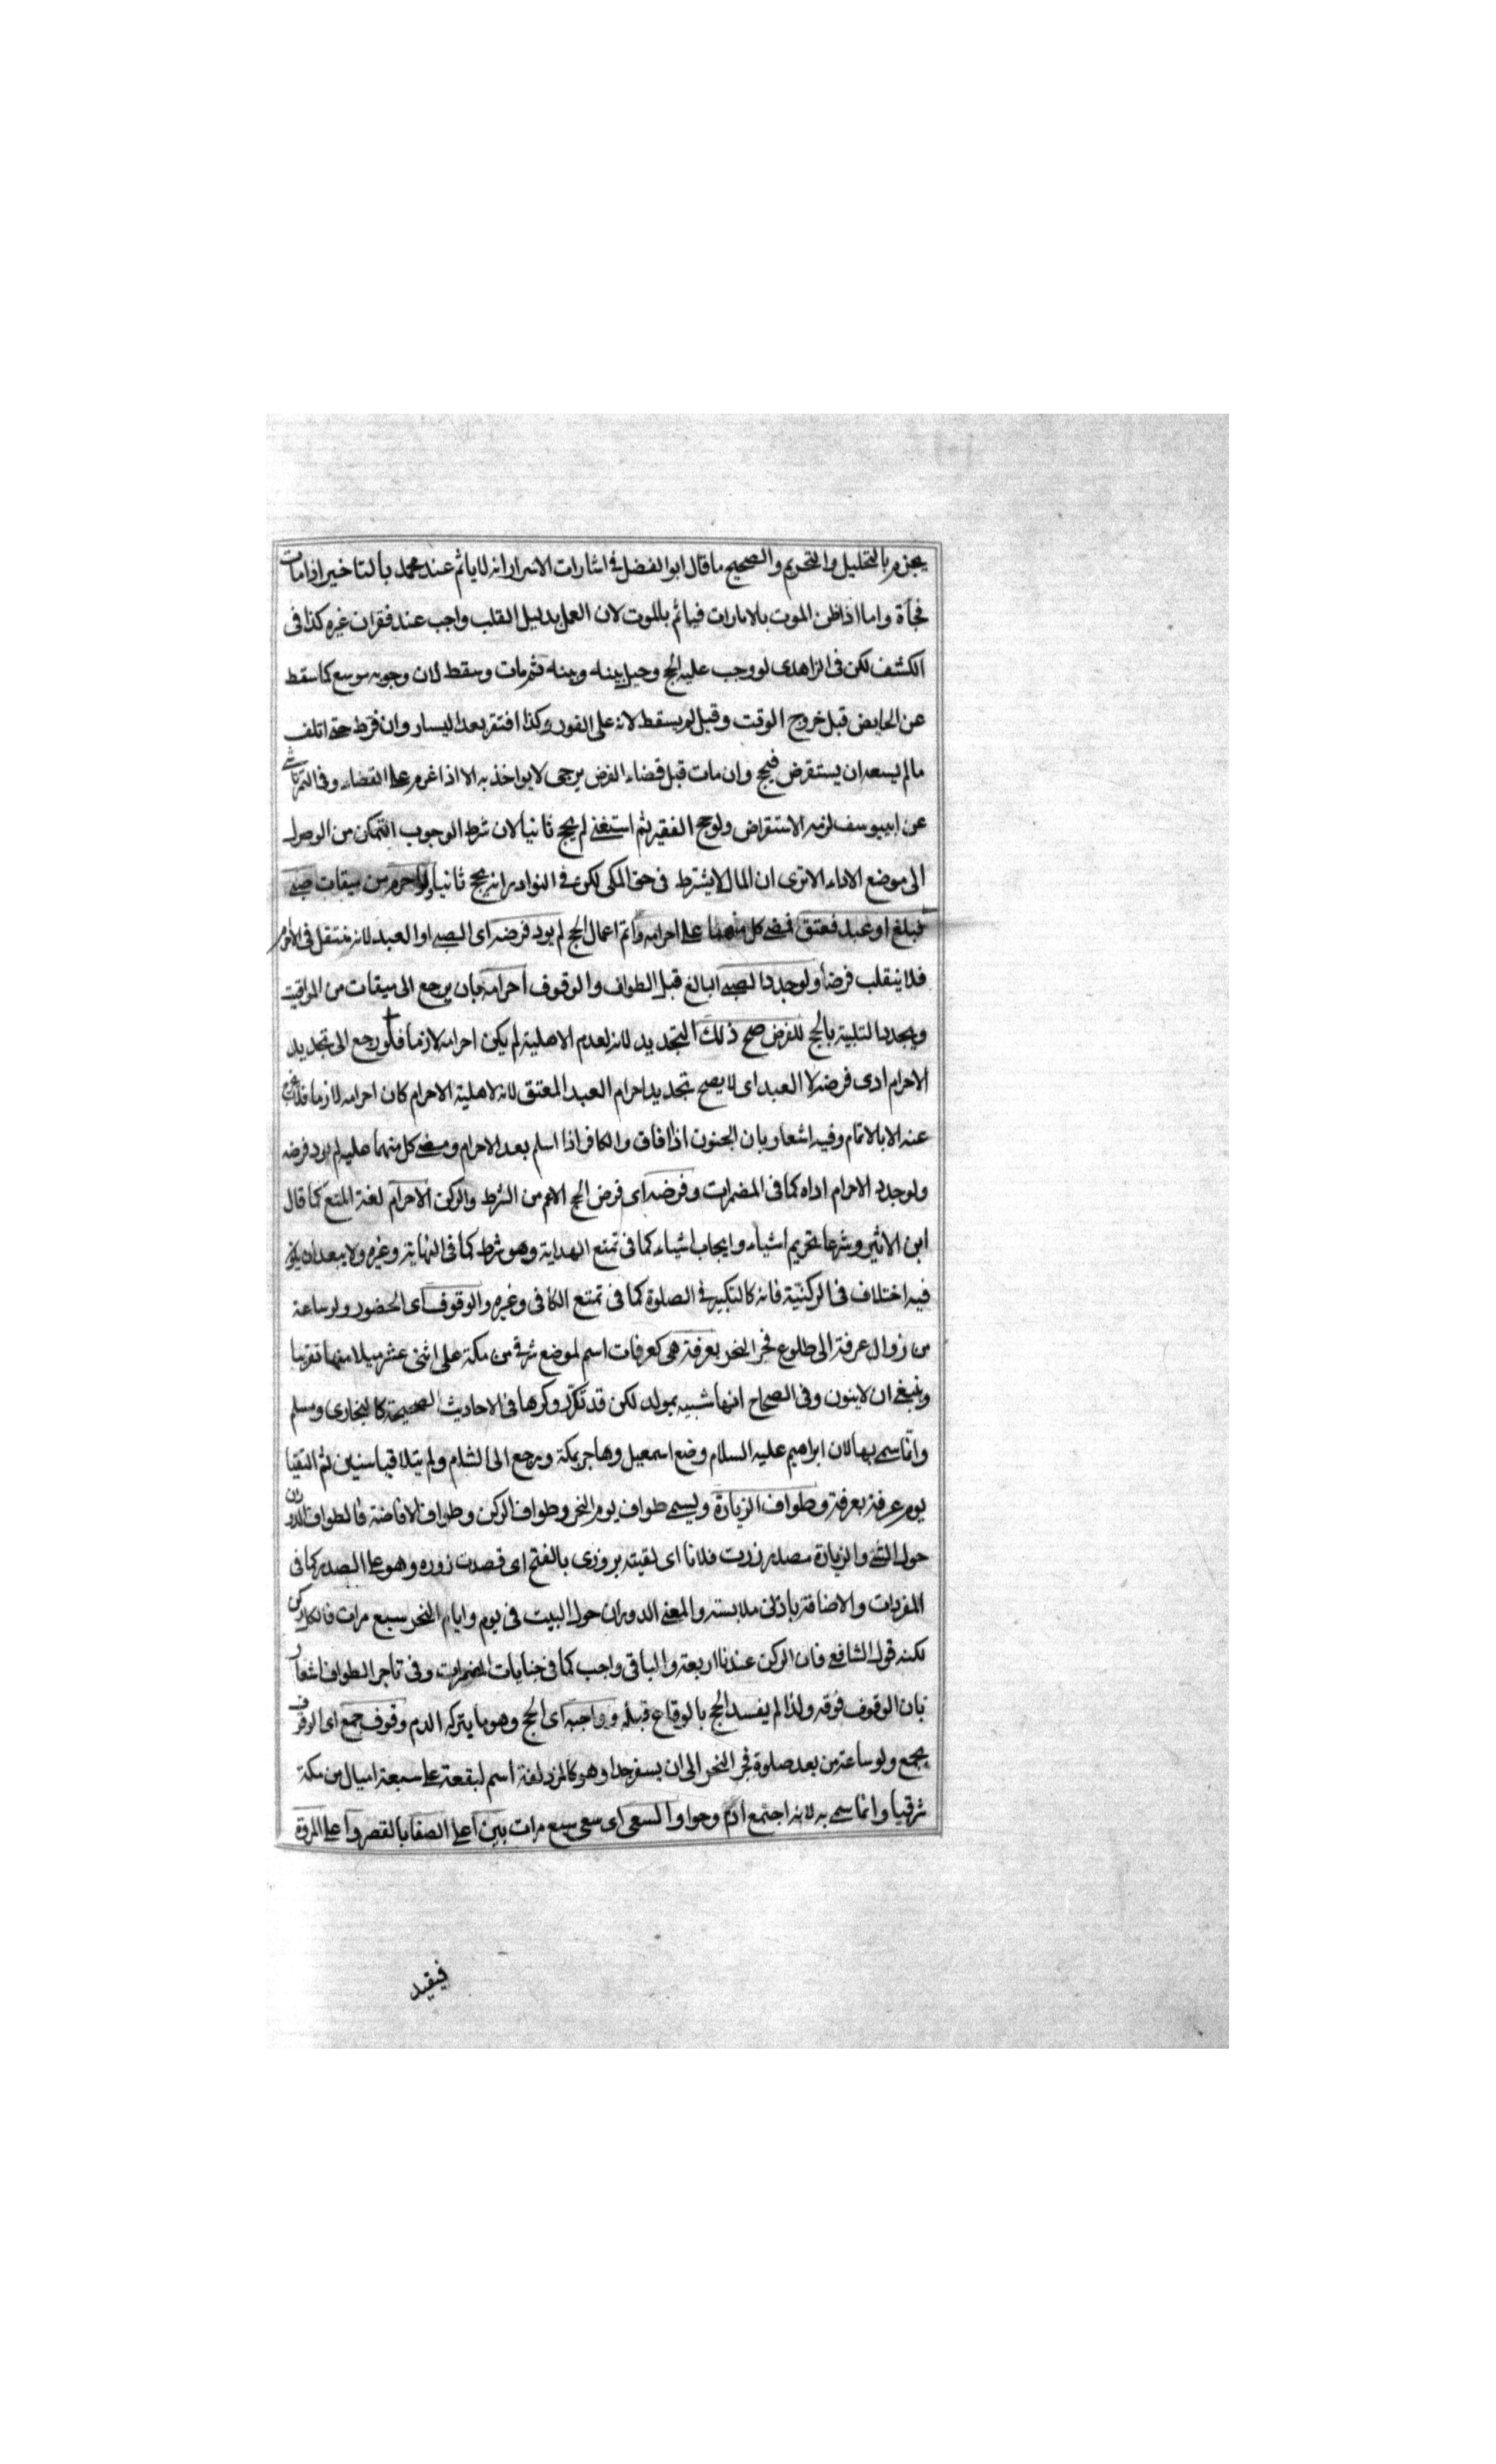 يجزم بالتحليل والتحريم والصحيح ما قال ابو الفضل في اشارات الاسرار انه لا ياثم عند محمد بالتاخير اذا مات
فجأة واما اذا ظن الموت بالامارات فياثم بالموت لان العمل بدليل القلب واجب عند فقدان غيره كذا فى
الكشف لكن فى الزاهدى لو وجب عليه الحج وحيل بينه وبينه فثم مات وسقط لان وجوبه موسع كما سقط
عن الحايض قبل خروج الوقت وقيل لم يسقط لانه على الفور وكذا افتقر بعد اليسار وان فرط حتى اتلف
ماله يسعه ان يستقرض فيحج وان مات قبل قضاء الفرض يرجى لا يواخذ به الا اذا عزم على القضاء وفى التمرتاشى
عن ابييوسف لزمه الاستقراض ولو حج الفقير ثم استغنى لم يحج ثانيا لان شرط الوجوب التمكن من الوصول
الى موضع الاداء الا ترى ان المال لا يشترط فى حق المكى لكن في النوادر انه يحج ثانيا ولو احرم من ميقات صبى
فبلغ او عبد فعتق فمضى كل منهما على احرامه واتم اعمال الحج لم يود فرضه اى الصبى او العبد لانه منتقل فى الاحرام
فلا ينقلب فرضا ولو جدد الصبى البالغ قبل الطواف والوقوف احرامه بان يرجع الى ميقات من المواقيت
ويجدد التلبية بالحج للفرض صح ذلك التجديد لانه لعدم الاهلية لم يكن احرامه لازما فلو رجع الى تجديد
الاحرام ادى فرضه لا العبد اى لا يصح تجديد احرام العبد المعتق لانه لاهلية الاحرام كان احرامه لازما فلا يخرج
عنه الا بالاتمام وفيه اشعار بان المجنون اذا افاق والكافر اذا اسلم بعد الاحرام ومضى كل منهما عليه لم يود فرضه
ولو جدد الاحرام اداه كما فى المضمرات وفرضه اى فرض الحج الاعم من الشرط والركن الاحرام لغة المنع كما قال
ابن الاثير وشرعا تحريم اشياء وايجاب اشياء كما فى تمتع الهداية وهو شرط كما فى النهاية وغيره ولا يبعد ان يكون
فيه اختلاف فى الركنية فانه كالتكبير في الصلوة كما فى تمتع الكافى وغيره والوقوف اى الحضور ولو ساعة
من زوال عرفة الى طلوع فجر النحر بعرفة هى كعرفات اسم لموضع شرقى من مكة على اثنى عشر ميلا منها تقريبا
وينبغى ان لا ينون وفى الصحاح انها شبيه بمولد لكن قد تكرر ذكرها فى الاحاديث الصحيحة كالبخارى ومسلم
وانما سمى بها لان ابراهيم عليه السلام وضع اسمعيل وهاجر بمكة ورجع الى الشام ولم يتلاقيا سنين ثم التقيا
يوم عرفة بعرفة وطواف الزيارة ويسمى طواف يوم النحر وطواف الركن وطواف الافاضة فالطواف الدوران
حول الشئ والزيارة مصدر زرت فلانا اى لقيته بزورى بالفتح اى قصدت زوره وهو على الصدر كما فى
المفردات والاضافة بادنى ملابسته والمعنى الدوران حول البيت فى يوم وايام النحر سبع مرات فالكل ركن
لكنه قول الشافعى فان الركن عندنا اربعة والباقى واجب كما فى جنايات المضمرات وفى تاخر الطواف اشعار
بان الوقوف فوقه ولذا لم يفسد الحج بالوقاع قبله وواجبه اى الحج وهو ما يتركه الدم وقوف جمع اى الوقوف
بجمع ولو ساعة من بعد صلوة فجر النحر الى ان يسفر جدا وهو كالمزدلفة اسم لبقعة على سبعة اميال من مكة
شرقيا وانما سمى به لانه اجتمع ادم وحوا والسعى اى سعى سبع مرات بين اعلى الصفا بالقصر واعلى المروة
فيقيد